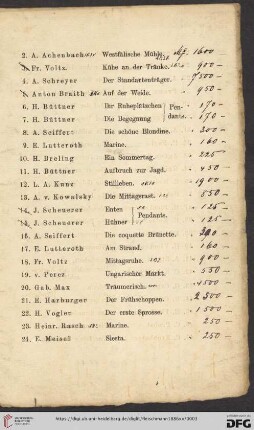 2. A. Achenbach Westfälische Mühle. 1600 –
3. Fr. Voltz. Kühe an der Tränke. 900 –
4. A. Schreyer Der Standartenträger. 7500 –
5. Anton Braith Auf der Weide. 950 –
6. H. Büttner Ihr Ruheplätzchen Pen- 170 –
7. H. Büttner Die Begegnung dants. 170 –
8. A. Seiffert Die schöne Blondine. 200 –
9. E. Lutteroth Marine. 160 –
10. H. Breling Ein Sommertag. 225 –
11. H. Büttner Aufbruch zur Jagd. 450 –
12. L. A. Kunz Stillleben. 1900 –
13. A. v. Kowalsky Die Mittagsrast. 550 –
14. J. Scheuerer Enten Pendants. 125 –
15. J. Scheuerer Hühner 125 –
16. A. Seiffert Die coquette Brünette.
17. E. Lutteroth Am Strand. 160 –
18. Fr. Voltz Mittagsruhe. 900 –
19. v. Perez Ungarischer Markt. 550 –
20. Gab. Max Träumerisch. 4500 –
21. E. Harburger Der Frühschoppen. 2500 –
22. H. Vogler Der erste Sprosse. 1500 –
23. Heinr. Rasch Marine. 250 –
24. E. Meisel Siesta. 250 –
UNIVERSITÄTS-
BIBLIOTHEK
HEIDELBERG
Gefördert durch
DFG